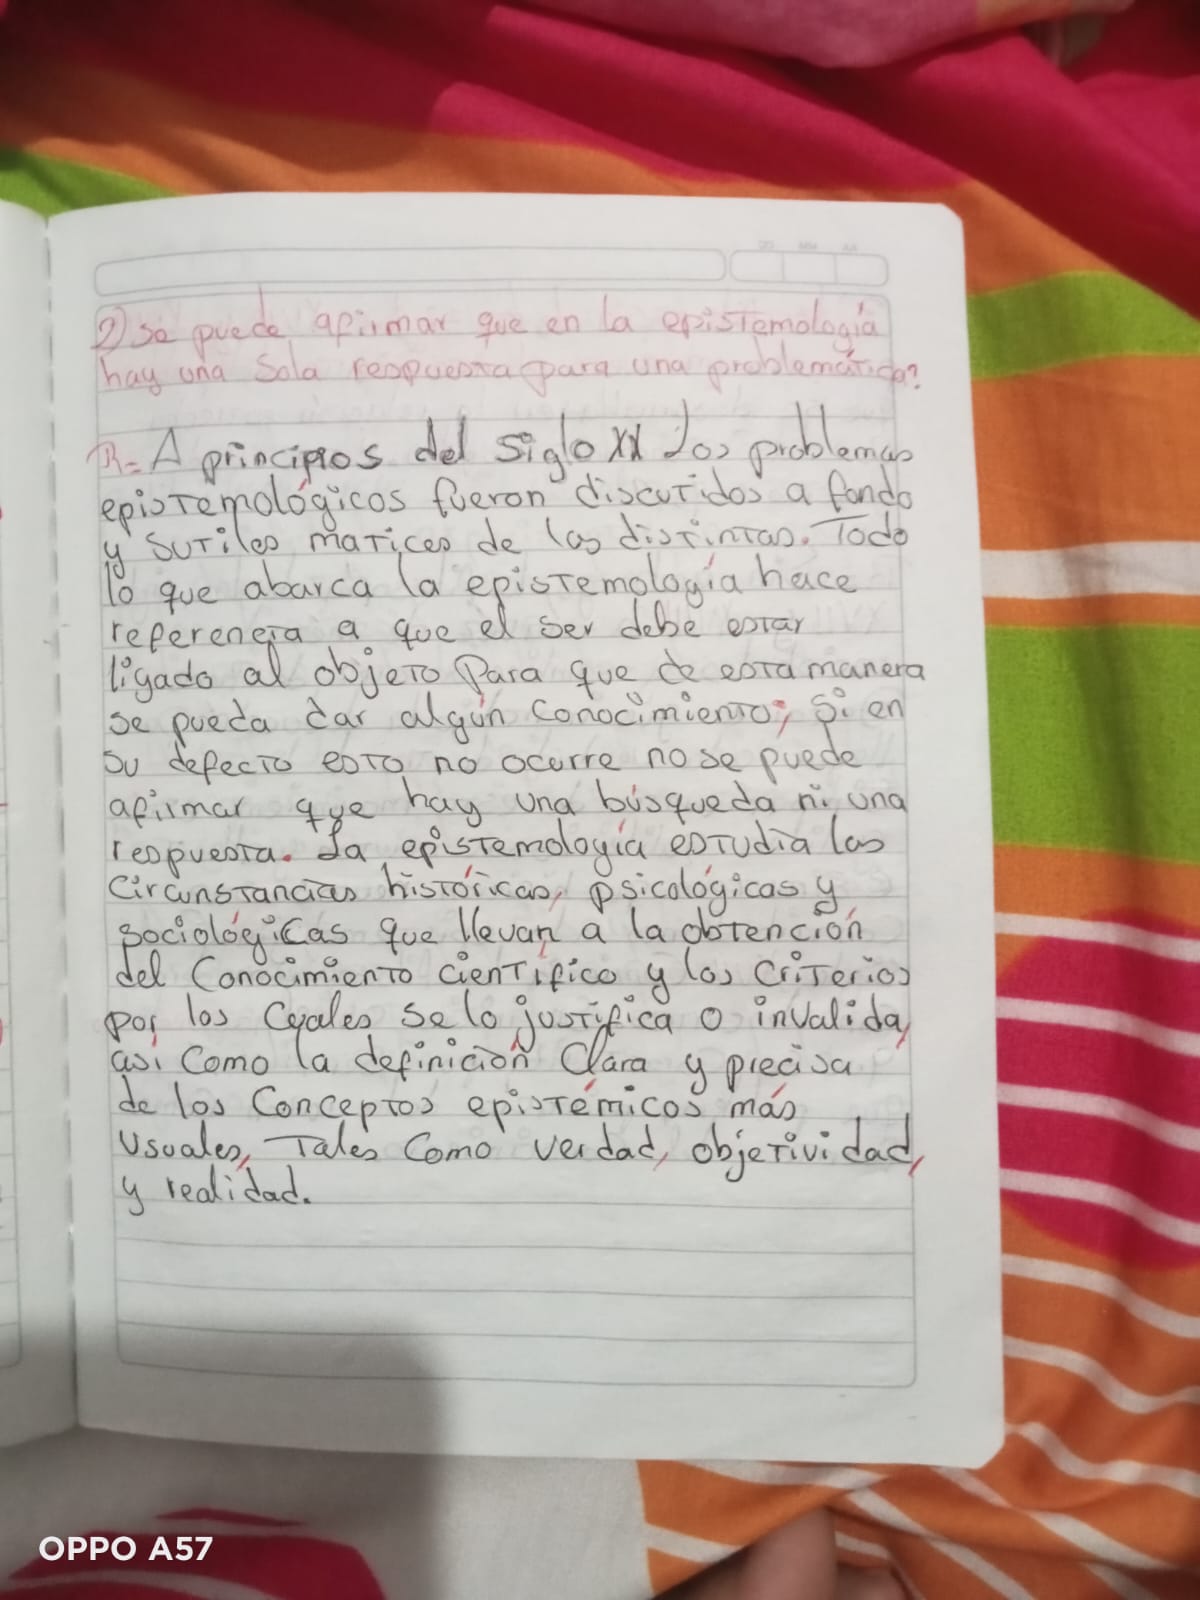 DD MM AA
2) se puede afirmar que en la epistemología
hay una Sola respuesta para una problemática?
R= A principios del siglo XX Los problemas
epistemológicos fueron discutidos a fondo
y sutiles matices de las distintas. Todo
lo que abarca la epistemología hace
referencia a que el ser debe estar
ligado al objeto Para que de esta manera
se pueda dar algún Conocimiento; Si en
su defecto esto no ocurre no se puede
afirmar que hay una búsqueda ni una
respuesta. La epistemología estudia las
Circunstancias históricas, psicológicas y
sociológicas que llevan a la obtención
del Conocimiento científico y los Criterios
por los Cuales Se lo justifica o invalida,
así Como la definición Clara y precisa
de los Conceptos epistémicos más
Usuales, Tales Como verdad, objetividad,
y realidad.
OPPO A57